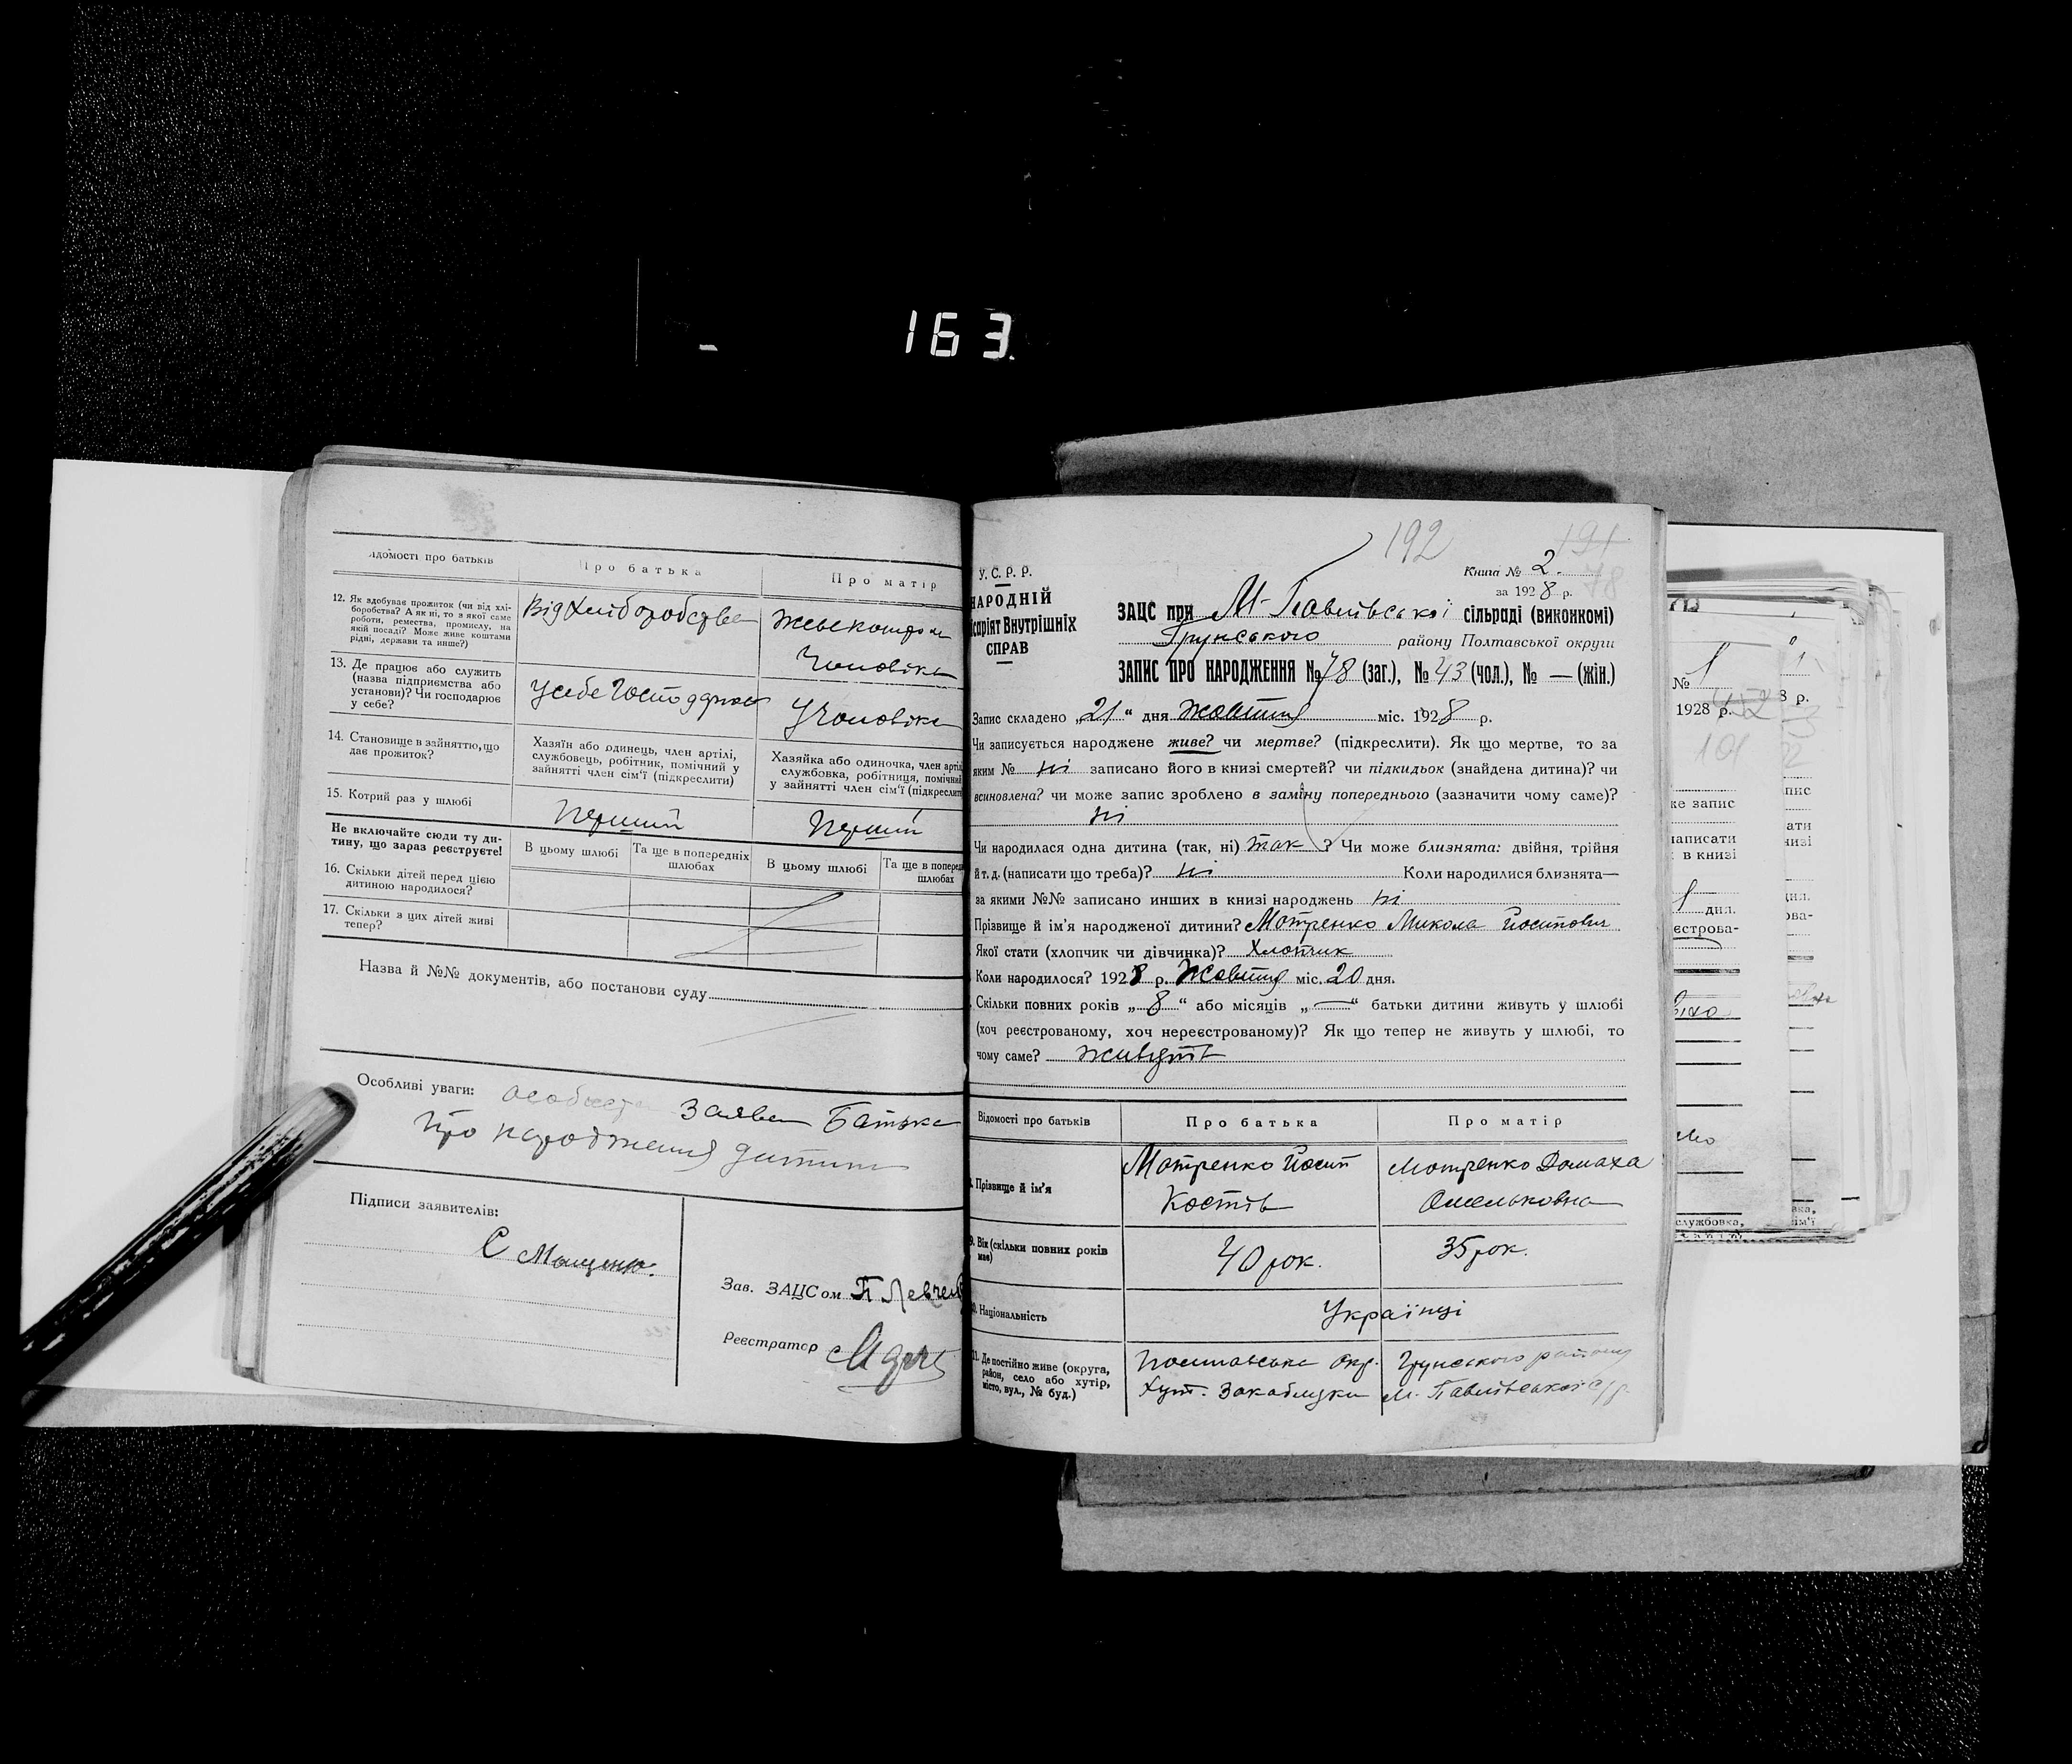 163.
Відомості про батьків
Про батька
Про матір
12. Як здобуває прожиток (чи від хлі-
боробства? А як ні, то з якої саме
роботи, ремества, промислу, на
якій посаді? Може живе коштами
рідні, держави та инше?)
Від Хліборобства
Чоловіка
13. Де працює або служить
(назва підприємства або
установи)? Чи господарює
у себе?
У себе
У Чоловіка
14. Становище в зайняттю, що
дає прожиток?
Хазяїн або одинець, член артілі,
службовець, робітник, помічний у
зайнятті член сім'ї (підкреслити)
Хазяйка або одиночка, член арті
службовка, робітниця, помічни
у зайнятті член сім'ї (підкресли
15. Котрий раз у шлюбі
Перший
Перший
Не включайте сюди ту ди-
тину, що зараз реєструєте!
В цьому шлюбі
Та ще в попередніх
шлюбах
В цьому шлюбі
Та ще в поперед
шлюбах
16. Скільки дітей перед цією
дитиною народилося?
17. Скільки з цих дітей живі
тепер?
Назва й №№ документів, або постанови суду
Особливі уваги: особиста заява Батька
про народження дитини
Підписи заявителів:
Зав. ЗАЦСом П Левчен
Реєстратор
192
191
78
У.С.Р.Р.
НАРОДНІЙ
ісаріят Внутрішніх
СПРАВ
Книга № 2.
за 1928 р.
ЗАЦС при М-Павлівській сільраді (виконкомі)
Грунського району Полтавської округи
ЗАПИС ПРО НАРОДЖЕННЯ № 78 (заг.), № 43 (чол.), № — (жін.)
Запис складено „21" дня Жовтня міс. 1928 р.
Чи записується народжене живе? чи мертве? (підкреслити). Як що мертве, то за
яким № ні записано його в книзі смертей? чи підкидьок (знайдена дитина)? чи
всиновлена? чи може запис зроблено в заміну попереднього (зазначити чому саме)?
ні
Чи народилася одна дитина (так, ні) так ? Чи може близнята: двійня, трійня
й т. д. (написати що треба)? ні Коли народилися близнята—
за якими №№ записано инших в книзі народжень ні
Прізвище й ім'я народженої дитини? Мотренко Микола Йосипович
Якої стати (хлопчик чи дівчинка)? Хлопчик
Коли народилося? 1928 р. Жовтня міс. 20 дня.
Скільки повних років „8" або місяців „—" батьки дитини живуть у шлюбі
(хоч реєстрованому, хоч нереєстрованому)? Як що тепер не живуть у шлюбі, то
чому саме? живуть
Відомості про батьків
Про батька
Про матір
Прізвище й ім'я
Мотренко Йосип
Костів
Мотренко Домаха
Омельковна
9. Вік (скільки повних років
має)
40 рок.
35 рок.
Національність
Українці
11. Де постійно живе (округа,
район, село або хутір,
місто, вул., № буд.)
Полтавська окр. Грунського району
Хут. Закаблуки М. Павлівської с/р.
№ 1
1928 р.
8 р.
101
ке запис
написати
в книзі
дня.
естрова-
службовка,